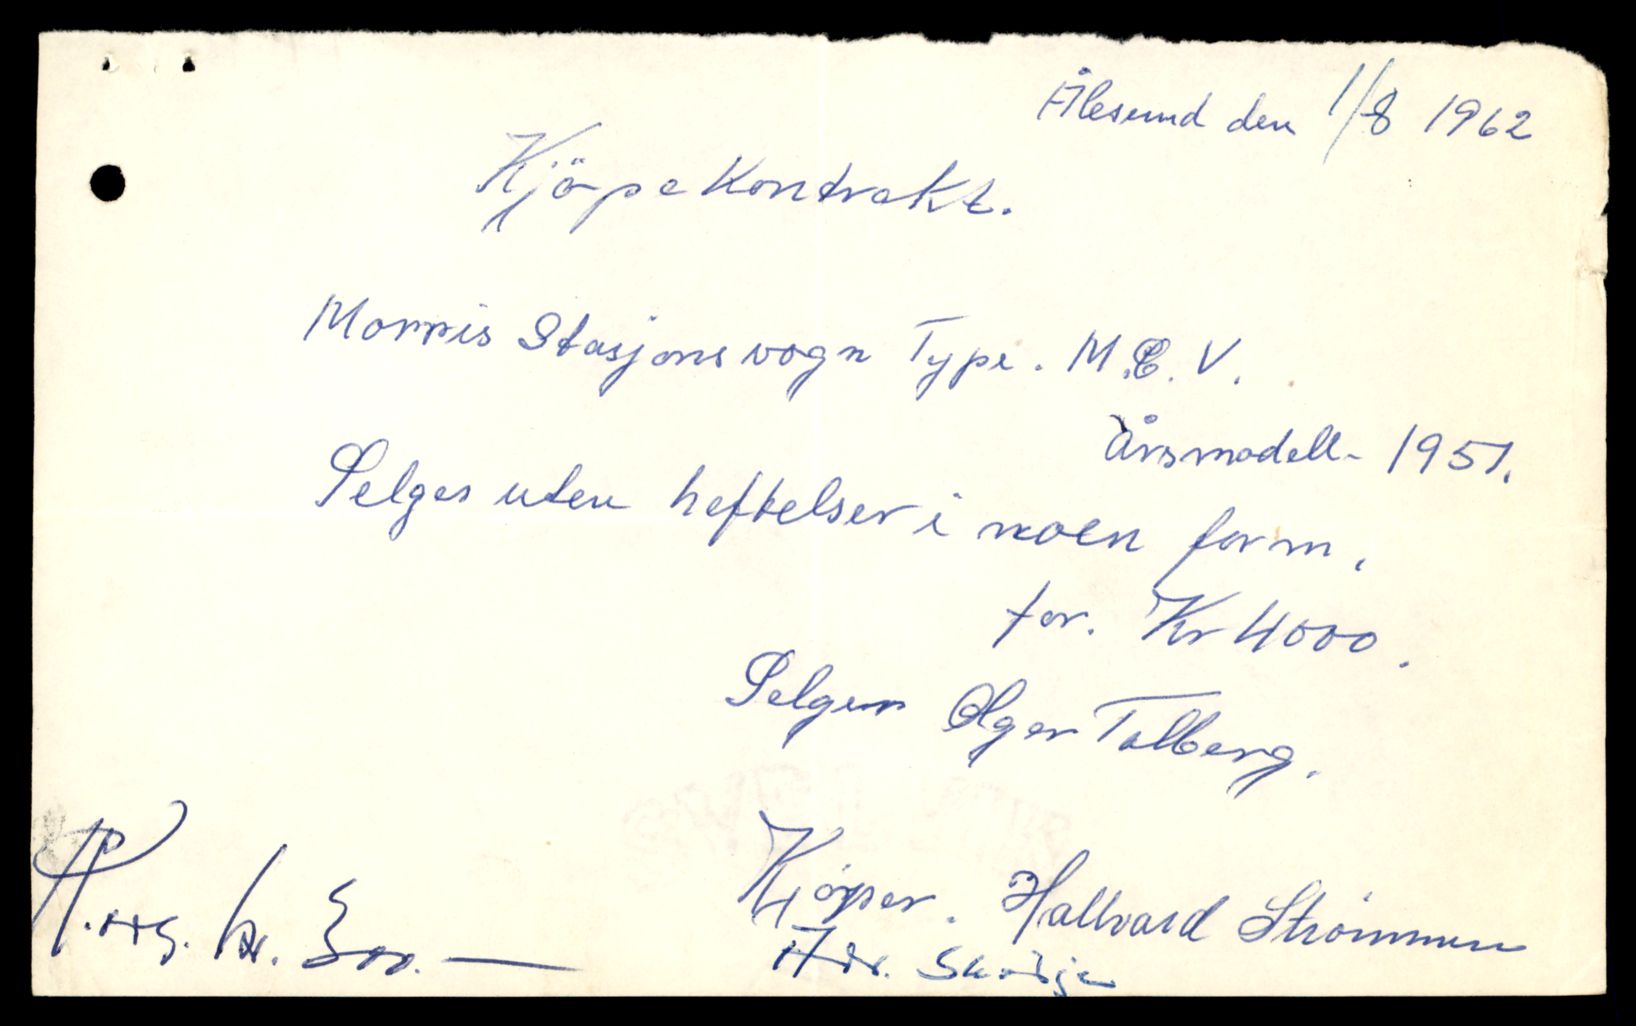 Ålesund den 1/8 1962
Kjöpekontrakt.
Morris Stasjonsvogn Type. M.C.V.
Årsmodell - 1951.
Selges uten heftelser i noen form.
for. Kr 4000.
Selger Olger Talberg.
Kjøper. Hallvard Strømmen
Adr. Skodje
kr. 300.—